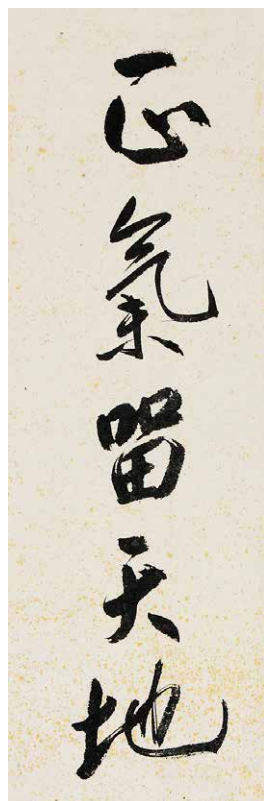 正氣留天地